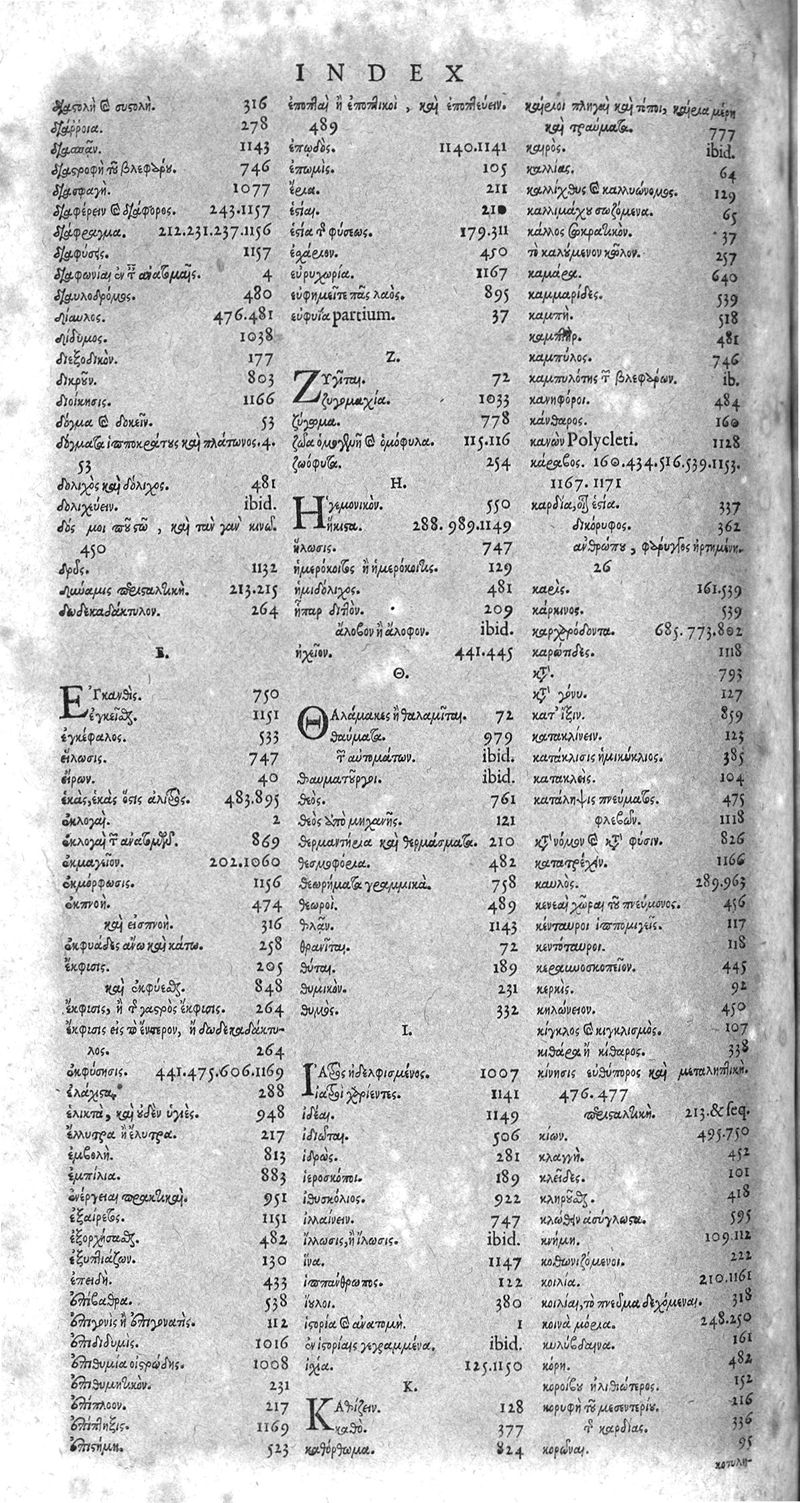 INDEX
διαστολὴ & συστολὴ. 316
διάῤῥοια. 278
διαπασῶν. 1143
διαστροφὴ τοῦ βλεφάρου. 746
διασφαγὴ. 1077
διαφέρειν & διάφορος. 243.1157
διάφραγμα. 212.231.237.1156
διάφυσις. 1157
διαφωνίαι ἐν τῆς ἀνατομαῖς. 4
διαυλοδρόμος. 480
δίαυλος. 476.481
δίδυμος. 1038
διεξοδικὸν. 177
δικροῦν. 803
διοίκησις. 1166
δόγμα & δοκεῖν. 53
δόγματα ἱπποκράτους καὶ πλάτωνος. 4.
53
δολιχὸς καὶ δόλιχος. 481
δολιχεύειν. ibid.
δός μοι ποῦ στῶ, καὶ τὰν γᾶν κινῶ.
450
1132
δύναμις περισταλτικὴ. 213.215
δωδεκαδάκτυλον. 264
E.
ΕΓκανθὶς. 750
ἐγκεῖσθαι. 1151
ἐγκέφαλος. 533
εἴλωσις. 747
εἴρων. 40
ἑκὰς, ἑκὰς ὅστις ἀλιτρὸς. 483.895
ἐκλογαὶ. 2
ἐκλογαὶ τῶν ἀνατομῶν. 869
ἐκμαγεῖον. 202.1060
ἐκμόρφωσις. 1156
ἐκπνοὴ. 474
καὶ εἰσπνοὴ. 316
ἐκφυάδες ἄνω καὶ κάτω. 258
ἔκφυσις. 205
καὶ ἐκφύεσθαι. 848
ἔκφυσις, ἢ τῆς γαστρὸς ἔκφυσις. 264
ἔκφυσις εἰς τὸ ἔντερον, ἢ δωδεκαδάκτυ-
λος. 264
ἐκφύσησις. 441.475.606.1169
ἐλάχιστα. 288
ἑλικτὰ, καὶ οὐδὲν ὑγιὲς. 948
ἔλλυτρα ἢ ἔλυτρα. 217
ἐμβολὴ. 813
ἐμπίλια. 883
ἐνέργειαι πρακτικαὶ. 951
ἐξαίρετος. 1151
ἐξορχήσασθαι. 482
ἐξυπτιάζων. 130
ἐπειδὴ. 433
ἐπιβάθρα. 538
ἐπιγονὶς ἢ ἐπιγουνατὶς. 112
ἐπιδιδυμὶς. 1016
ἐπιθυμία οἰστρώδης. 1008
ἐπιθυμητικὸν. 231
ἐπίπλοον. 217
ἐπίπληξις. 1169
ἐπιστήμη. 523
ἐποπτικοὶ, καὶ ἐποπτεύειν.
489
ἐπῳδὸς. 1140.1141
ἐπωμὶς. 105
ἔρια. 211
ἑστίαι. 210
ἑστία τῆς φύσεως. 179.311
ἐχάριον. 450
εὐρυχωρία. 1167
εὐφημεῖτε πᾶς λαὸς. 895
εὐφυΐα partium. 37
Z.
ΖΥγῖται. 72
ζυγομαχία. 1033
ζύγωμα. 778
ζῶα ὁμογενῆ & ὁμόφυλα. 115.116
ζωόφυτα. 254
H.
ΗΓεμονικὸν. 550
ἥκιστα. 288.989.1149
ἥλωσις. 747
ἡμερόκοιτος ἢ ἡμερόκοιτις. 129
ἡμιδόλιχος. 481
ἧπαρ διττὸν. 209
ἄλοβον ἢ ἄλοφον. ibid.
ἠχεῖον. 441.445
Θ.
ΘΑλάμακες ἢ θαλαμῖται. 72
θαύματα. 979
τῶν αὐτομάτων. ibid.
θαυματουργοὶ. ibid.
θεὸς. 761
θεὸς ἀπὸ μηχανῆς. 121
θερμαντήρια καὶ θερμάσματα. 210
θεσμοφόρια. 482
θεωρήματα γραμμικὰ. 758
θεωροὶ. 489
θλᾶν. 1143
θρανῖται. 72
θύται. 189
θυμικὸν. 231
θυμὸς. 332
I.
ΙΑτρὸς ἠδελφισμένος. 1007
ἰατροὶ χρίοντες. 1141
ἰδέαι. 1149
ἰδιῶται. 506
ἱδρὼς. 281
ἱεροσκόποι. 189
ἰθυσκόλιος. 922
ἰλλαίνειν. 747
ἴλλωσις, ἢ ἴλωσις. ibid.
ἵνα. 1147
ἱππάνθρωπος. 122
ἴουλοι. 380
ἱστορία & ἀνατομὴ. 1
ἐν ἱστορίαις γεγραμμένα. ibid.
ἰσχία. 125.1150
K.
ΚΑθίζειν. 128
καθὸ. 377
κατόρθωμα. 824
καίριοι πληγαὶ καὶ τόποι, καίρια μέρη
καὶ τραύματα. 777
καιρὸς. ibid.
καλλίας. 64
καλλίχθυς & καλλιώνυμος. 129
καλλιμάχου σωζόμενα. 65
κάλλος σωκρατικὸν. 37
τὸ καλούμενον κῶλον. 257
καμάρα. 640
καμμαρίδες. 539
καμπὴ. 518
καμπτὴρ. 481
καμπύλος. 746
καμπυλότης τῶν βλεφάρων. ib.
κανηφόροι. 484
κάνθαρος. 160
κανὼν Polycleti. 1128
κάραβος. 160.434.516.539.1153.
1167. 1171
καρδία, οἷον ἑστία. 337
δικόρυφος. 362
ἀνθρώπου, φάρυγγος ἠρτημένη.
26
καρὶς. 161.539
κάρκινος. 539
καρχαρόδοντα. 685.773.802
καρώτιδες. 1118
κατὰ. 793
κατὰ γόνυ. 127
κατ' ἴξιν. 859
κατακλίνειν. 123
κατάκλισις ἡμικύκλιος. 385
κατακλεὶς. 104
κατάληψις πνεύματος. 475
φλεβῶν. 1118
κατὰ νόμον & κατὰ φύσιν. 826
κατατρέχειν. 1166
καυλὸς. 289.963
κενεαὶ χῶραι τοῦ πνεύμονος. 456
κένταυροι ἱππομιγεῖς. 117
κεντόταυροι. 118
κεραμοσκοπεῖον. 445
κερκὶς. 92
κηλώνειον. 450
κίγκλος & κιγκλισμὸς. 107
κιθάρα ἢ κίθαρος. 338
κίνησις εὐθύπορος καὶ μεταληπτικὴ.
476.477
περισταλτικὴ. 213.& seq.
κίων. 495.750
κλαγγὴ. 452
κλεῖδες. 101
κληροῦσθαι. 418
κλωθὴν ἀσύγλωστα. 595
κνήμη. 109.112
κοθωνιζόμενοι. 222
κοιλία. 210.1161
κοιλίαι, τὸ πνεῦμα δεχόμεναι. 318
κοινὰ μόρια. 248.250
κολύβδαινα. 161
κόρη. 482
κοροίβου ἠλιθιώτερος. 152
κορυφὴ τοῦ μεσεντερίου. 216
τῆς καρδίας. 336
κορῶναι. 95
κοτυλη-